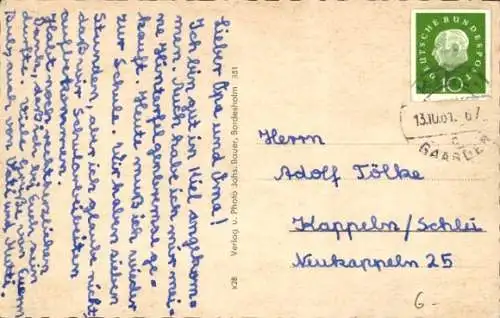 Lieber Opa und Oma!
Ich bin gut in Kiel angekom-
men. Auch habe ich mir mei-
ne Hinterfelgenbremse ge-
kauft. Heute muß ich wieder
zur Schule. Wir haben sieben
Stunden, aber ich glaube nicht
daß wir Schularbeiten
aufbekommen.
Habt noch rechtherzlichen
Dank, daß ich bei Euch sein
durfte. Viele Grüße von Euerm
auch von Vati und Mutti.
x28 Verlag u. Photo Johs. Bauer, Bordesholm 351
DEUTSCHE BUNDESPOST
10
13.10.61.-07
c
GAARDEN
Herrn
Adolf Tölke
Kappeln/Schlei
Neukappeln 25
6-